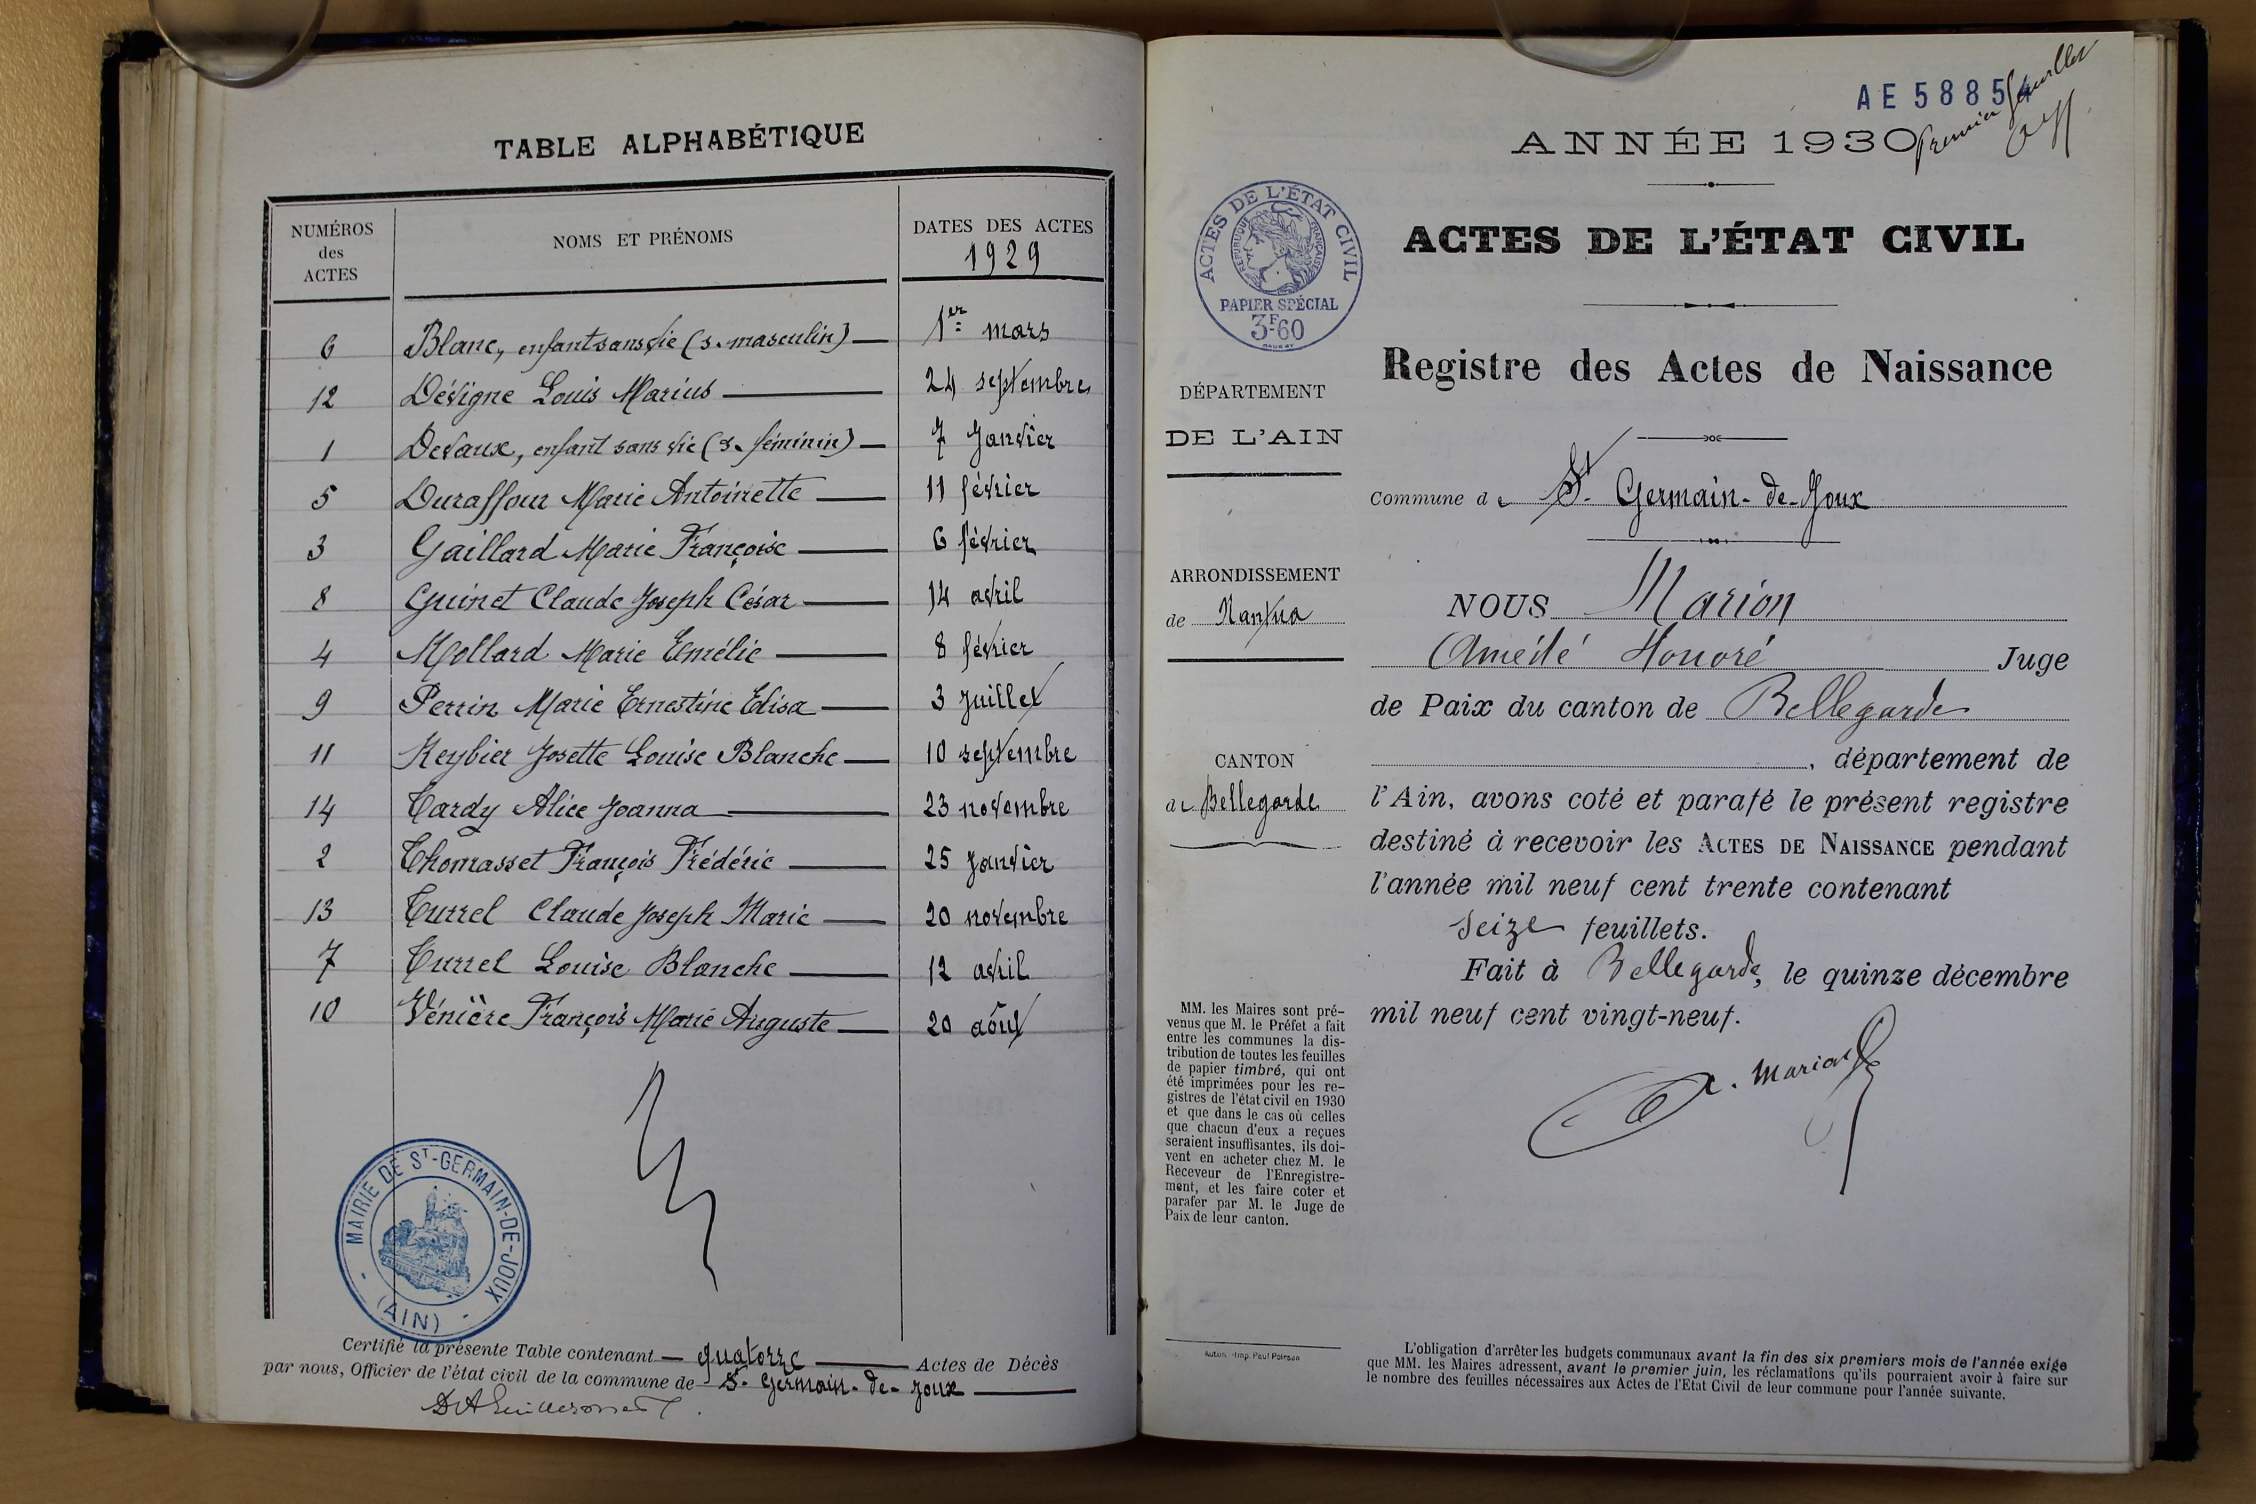 TABLE ALPHABÉTIQUE
NUMÉROS des ACTES
NOMS ET PRÉNOMS
DATES DES ACTES
1929
6 Blanc, enfant sans vie (s. masculin) 1er mars
12 Dévigne Louis Marius 24 septembre
1 Devaux, enfant sans vie (s. féminin) 7 Janvier
5 Duraffour Marie Antoinette 11 février
3 Gaillard Marie Françoise 6 février
8 Guinet Claude Joseph César 14 avril
4 Mollard Marie Emélie 8 février
9 Perrin Marie Ernestine Elisa 3 juillet
11 Reybier Josette Louise Blanche 10 septembre
14 Tardy Alice Joanna 23 novembre
2 Thomasset François Frédéric 25 janvier
13 Turrel Claude Joseph Marie 20 novembre
7 Turrel Louise Blanche 12 avril
10 Vénière François Marie Auguste 20 août
MAIRIE DE ST-GERMAIN-DE-JOUX
(AIN)
Certifié la présente Table contenant quatorze Actes de Décès
par nous, Officier de l'état civil de la commune de St. Germain-de-Joux
AE 5885
Premier feuillet
ANNÉE 1930
ACTES DE L'ÉTAT CIVIL
RÉPUBLIQUE FRANÇAISE
PAPIER SPÉCIAL
3F60
ACTES DE L'ÉTAT CIVIL
Registre des Actes de Naissance
DÉPARTEMENT
DE L'AIN
Commune de St. Germain-de-Joux
ARRONDISSEMENT
de Nantua
NOUS Marion
Amédé Honoré Juge
de Paix du canton de Bellegarde
CANTON
de Bellegarde
, département de
l'Ain, avons coté et parafé le présent registre
destiné à recevoir les ACTES DE NAISSANCE pendant
l'année mil neuf cent trente contenant
seize feuillets.
Fait à Bellegarde, le quinze décembre
mil neuf cent vingt-neuf.
A. Marion
MM. les Maires sont pré-
venus que M. le Préfet a fait
entre les communes la dis-
tribution de toutes les feuilles
de papier timbré, qui ont
été imprimées pour les re-
gistres de l'état civil en 1930
et que dans le cas où celles
que chacun d'eux a reçues
seraient insuffisantes, ils doi-
vent en acheter chez M. le
Receveur de l'Enregistre-
ment, et les faire coter et
parafer par M. le Juge de
Paix de leur canton.
L'obligation d'arrêter les budgets communaux avant la fin des six premiers mois de l'année exige
que MM. les Maires adressent, avant le premier juin, les réclamations qu'ils pourraient avoir à faire sur
le nombre des feuilles nécessaires aux Actes de l'Etat Civil de leur commune pour l'année suivante.